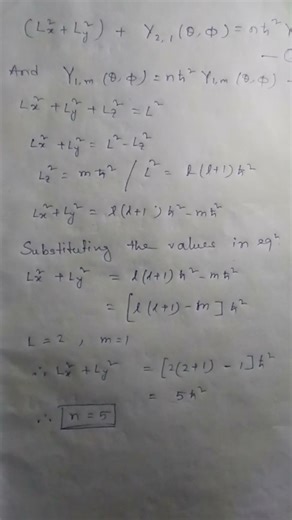 (Lx² + Ly²) + Y2,1 (θ, ϕ) = nħ² Y
And Y1,m (θ, ϕ) = nħ² Y1,m (θ, ϕ) -
Lx² + Ly² + Lz² = L²
Lx² + Ly² = L² - Lz²
Lz² = mħ² / L² = l(l+1)ħ²
Lx² + Ly² = l(l+1)ħ² - mħ²
Substituting the values in eqn
Lx² + Ly² = l(l+1)ħ² - mħ²
= [l(l+1) - m]ħ²
L = 2 , m = 1
∴ Lx² + Ly² = [2(2+1) - 1]ħ²
= 5ħ²
∴ n = 5